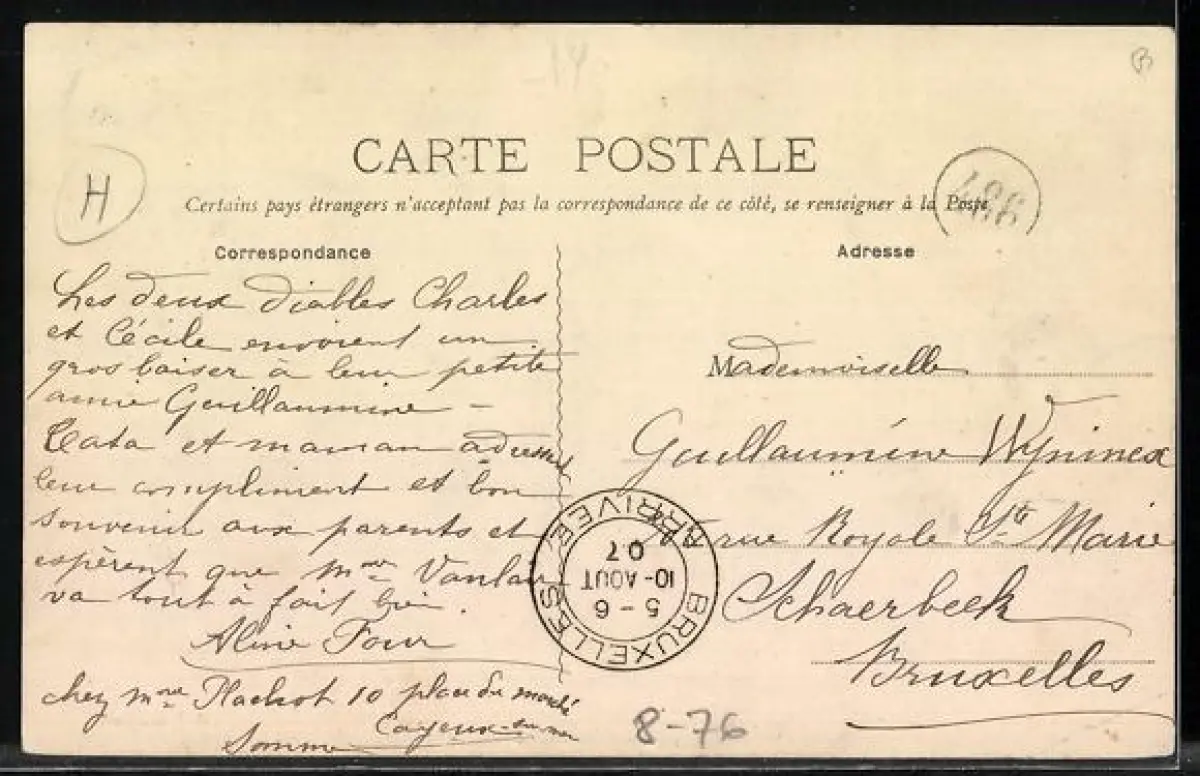 CARTE POSTALE
Certains pays étrangers n'acceptant pas la correspondance de ce côté, se renseigner à la Poste
H
Correspondance
Les deux diables Charles
et Cécile envoient un
gros baiser à leur petite
amie Guillaumine –
Tata et maman adressent
leur compliment et bon
souvenir aux parents et
espèrent que Mme
va tout à fait bien.
Aline Four
chez Mme 10 place du marché
Cayeux-sur-mer
Somme
Adresse
486
Mademoiselle
Guillaumine
rue Royale Ste Marie
Schaerbeek
Bruxelles
BRUXELLES
5-6
10-AOUT
07
ARRIVEE
8-76